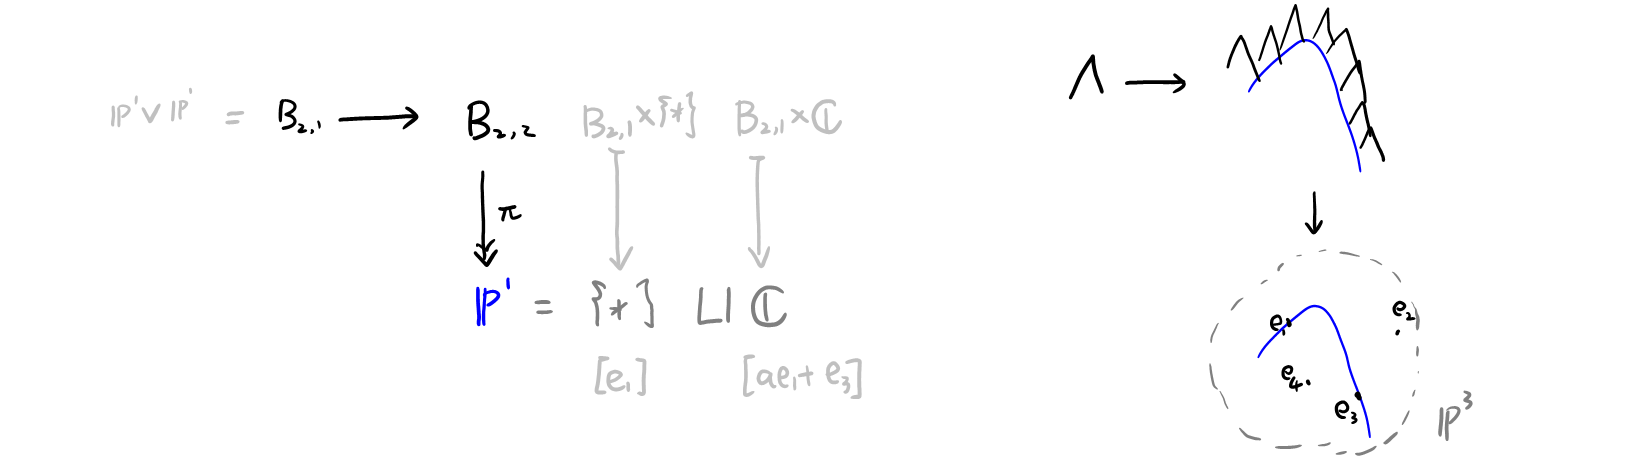 ℙ¹ ∨ ℙ¹ = B₂,₁ ⟶ B₂,₂ B₂,₁ × {*} B₂,₁ × ℂ
π
ℙ¹ = {*} ⊔ ℂ
[e₁] [ae₁ + e₃]
Λ ⟶
e₁
e₂
e₄
e₃
ℙ³